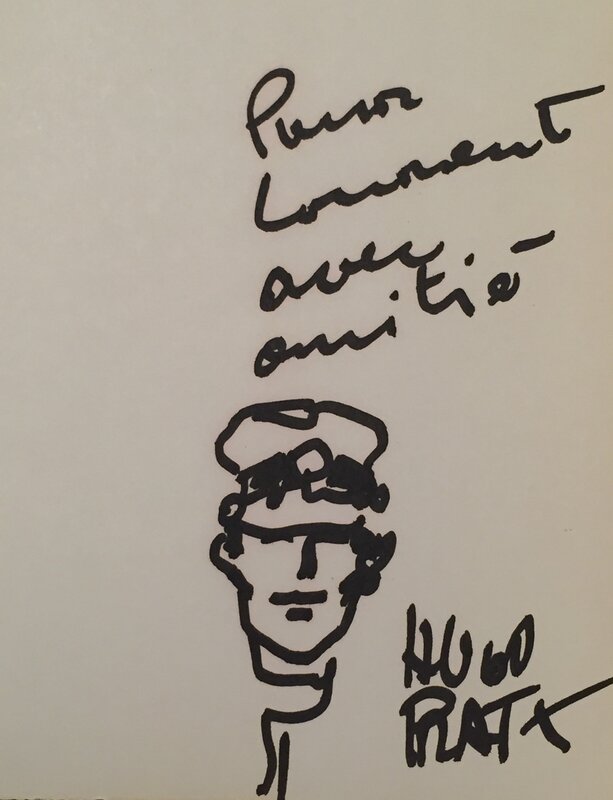 Pour
Laurent
avec
amitié
HUGO
PRATT